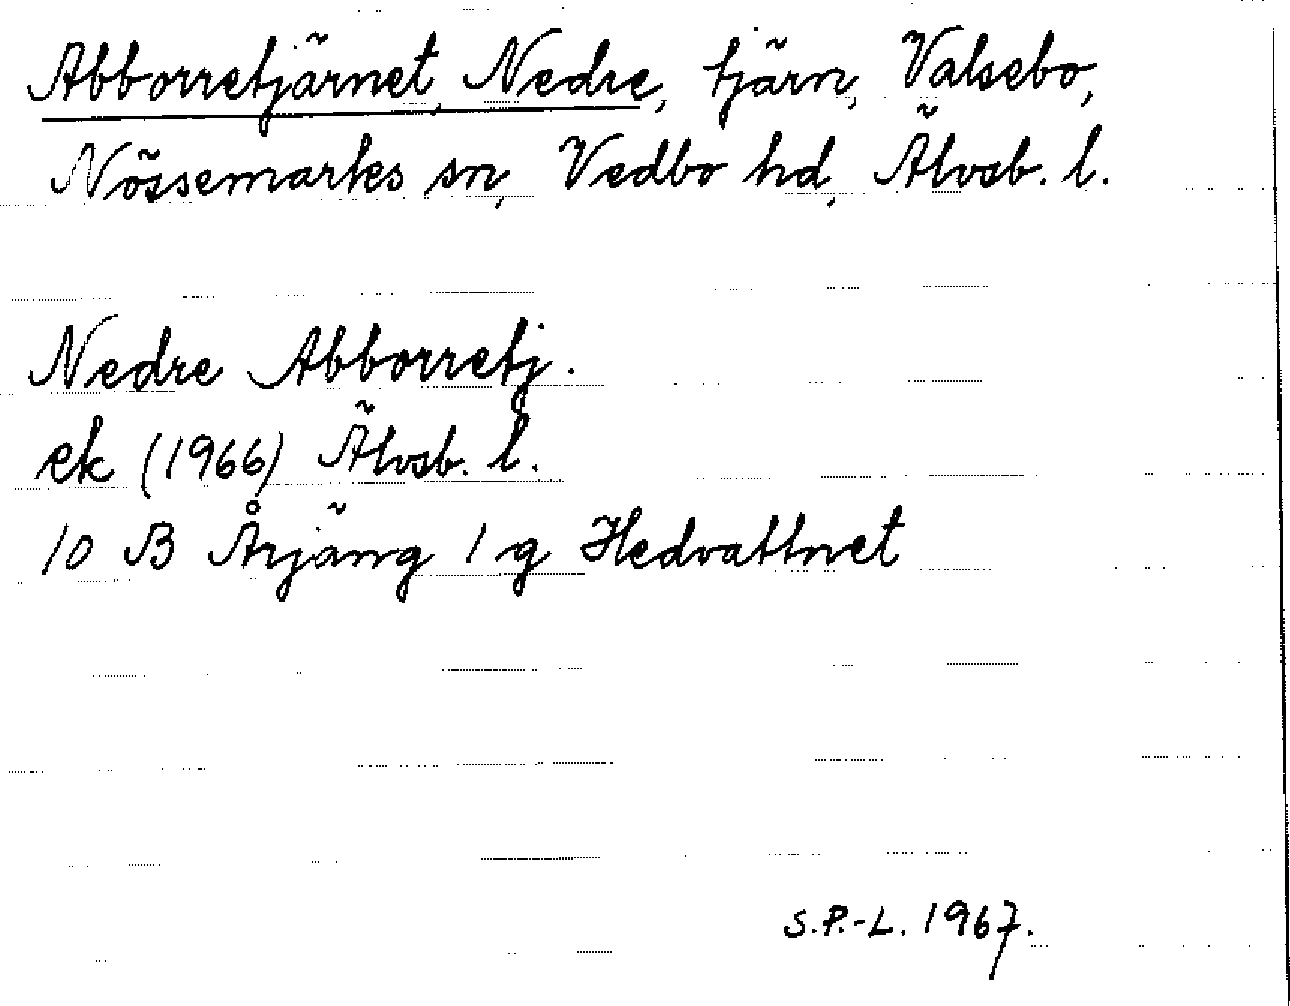 Abborretjärnet, Nedre, tjärn, Valsebo,
Nössemarks sn, Vedbo hd, Älvsb. l.
Nedre Abborretj.
ek (1966) Älvsb. l.
10 B Årjäng 1 g Hedvattnet
S.P.-L. 1967.